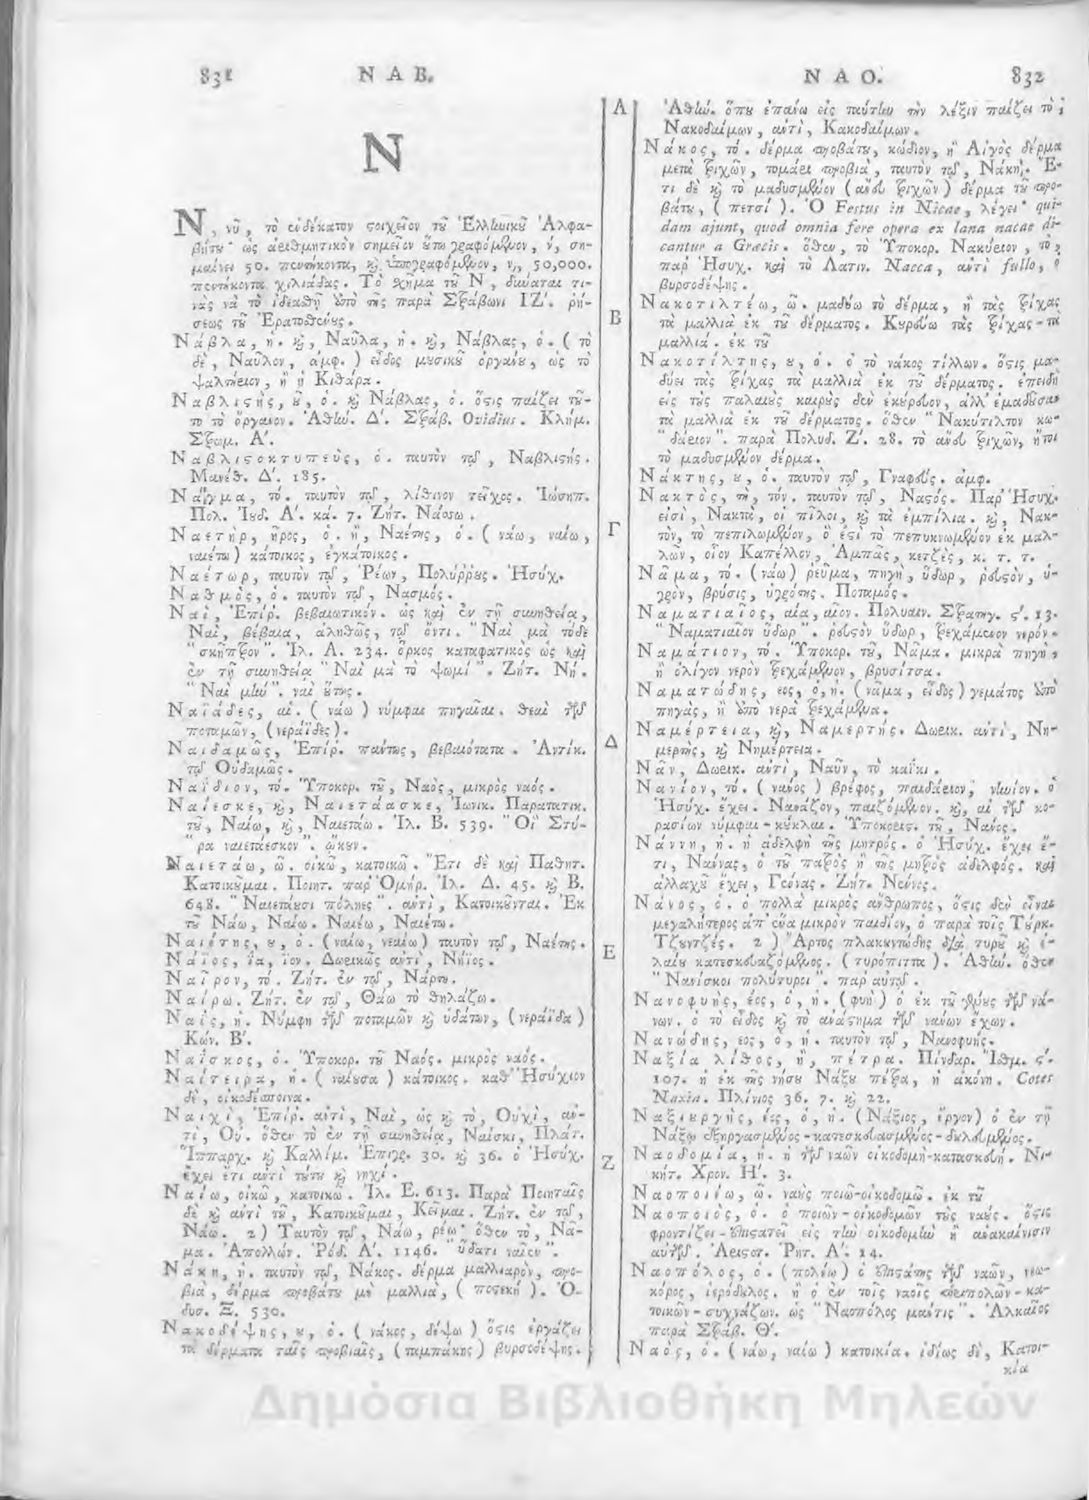 831 ΝΑΒ.
Ν
Ν, νῦ, τὸ ἑνδέκατον στοιχεῖον τȣ͂ Ἑλλωικȣ͂ Ἀλφα-
βήτȣ· ὡς ἀειθμητικὸν σημεῖον ȣ῞τω γραφόμενον, ν, ση-
μαίνει 50. πεντήκοντα, κ̀ ὑπογραφόμενον, ͵ν, 50,000.
πεντήκοντα χιλιάδας. Τὸ χῆμα τȣ͂ Ν, δύναται τι-
νὰς νὰ τὸ ἰδεασθῇ ἀπὸ τῆς παρὰ Στράβωνι ΙΖ'. ῥή-
σεως τȣ͂ Ἐρατοσθένȣς.
Νάβλα, ἡ. κ̀, Ναῦλα, ἡ. κ̀, Νάβλας, ὁ. (τὸ
δὲ, Ναῦλον, ἀμφ.) εἶδος μȣσικȣ͂ ὀργάνȣ, ὡς τὸ
ψαλτήειον, ἢ ἡ Κιθάρα.
Ναβλιστὴς, ȣ͂, ὁ. κ̀ Νάβλας, ὁ. ὅστις παίζει τȣ͂-
το τὸ ὄργανον. Ἀθήν. Δ'. Στράβ. Ovidius. Κλήμ.
Στρωμ. Α'.
Ναβλιστοκτυπεὺς, ὁ. ταυτὸν τῷ, Ναβλιστής.
Μανέθ. Δ'. 185.
Ναῖγμα, τό. ταυτὸν τῷ, λίθινον τεῖχος. Ἰώσηπ.
Πολ. Ἰȣδ. Α'. κά. 7. Ζήτ. Νάσσω.
Ναετὴρ, ῆρος, ὁ. ἢ, Ναέτης, ὁ. (νάω, ναίω,
ναιέτω) κάτοικος, ἐγκάτοικος.
Ναέτωρ, ταυτὸν τῷ, Ῥέων, Πολύῤῥȣς. Ἡσύχ.
Ναθμὸς, ὁ. ταυτὸν τῷ, Νασμός.
Ναὶ, Ἐπίῤ. βεβαιωτικόν. ὡς καὶ ἐν τῇ συνηθείᾳ,
Ναὶ, βέβαια, ἀληθῶς, τῷ ὄντι. "Ναὶ μὰ τόδε
"σκῆπτρον". Ἰλ. Α. 234. ὅρκος καταφατικὸς ὡς καὶ
ἐν τῇ συνηθείᾳ "Ναὶ μὰ τὸ ψωμί". Ζήτ. Νή.
"Ναὶ μὴν". ναὶ ὄντως.
Ναϊάδες, αἱ. (νάω) νύμφαι πηγαῖαι. θεαὶ τῶν
ποταμῶν, (νεράϊδες).
Ναιδαμῶς, Ἐπίῤ. πάντως, βεβαιότατα. Ἀντίκ.
τῷ Οὐδαμῶς.
Ναΐδιον, τό. Ὑποκορ. τȣ͂, Ναὸς, μικρὸς ναός.
Ναίεσκε, κ̀, Ναιετάασκε, Ἰωνικ. Παρατατικ.
τȣ͂, Ναίω, κ̀, Ναιετάω. Ἰλ. Β. 539. "Οἳ Στύ-
"ρα ναιετάεσκον". ᾤκȣν.
Ναιετάω, ῶ. οἰκῶ, κατοικῶ. Ἔτι δὲ καὶ Παθητ.
Κατοικȣ͂μαι. Ποιητ. παρ' Ὁμήρ. Ἰλ. Δ. 45. κ̀ Β.
648. "Ναιετάȣσι πόληες". αὐτὶ, Κατοικȣ͂νται. Ἐκ
τȣ͂ Νάω, Ναίω. Ναιέω, Ναιέτω.
Ναιέτης, ȣ, ὁ. (ναίω, νεαίω) ταυτὸν τῷ, Ναέτης.
Νάϊος, ΐα, ΐον. Δωεικῶς αὐτὶ, Νήϊος.
Ναῖρον, τό. Ζήτ. ἐν τῷ, Νάρτη.
Ναίρω. Ζήτ. ἐν τῷ, Θάω τὸ θηλάζω.
Ναῒς, ἡ. Νύμφη τῶν ποταμῶν κ̀ ὑδάτων, (νεράϊδα)
Κόν. Β'.
Ναΐσκος, ὁ. Ὑποκορ. τȣ͂ Ναός. μικρὸς ναός.
Ναίτειρα, ἡ. (ναίȣσα) κάτοικος. καθ' Ἡσύχιον
δὲ, οἰκοδέσποινα.
Ναιχὶ, Ἐπίῤ. αὐτὶ, Ναὶ, ὡς κ̀ τὸ, Οὐχὶ, αὐ-
τὶ, Οὐ. ὅθεν τὸ ἐν τῇ συνηθείᾳ, Ναίσκι, Πλάτ.
Ἵππαρχ. κ̀ Καλλίμ. Ἐπιγρ. 30. κ̀ 36. ὁ Ἡσύχ.
ἔχει ἔτι αὐτὶ τύτȣ κ̀ νηχί.
Ναίω, οἰκῶ, κατοικῶ. Ἰλ. Ε. 613. Παρὰ Ποιηταῖς
δὲ κ̀ αὐτὶ τȣ͂, Κατοικȣ͂μαι, Κεῖμαι. Ζήτ. ἐν τῷ,
Νάω. 2) Ταυτὸν τῷ, Νάω, ῥέω· ὅθεν τὸ, Νᾶ-
μα. Ἀπολλών. Ῥόδ. Α'. 1146. "ὕδατι ναῖεν".
Νάκη, ἡ. ταυτὸν τῷ, Νάκος. δέρμα μαλλιαρὸν, προ-
βιὰ, δέρμα προβάτȣ μὲ μαλλιὰ, (ποστεκὴ). Ὀ-
δυσ. Ξ. 530.
Νακοδέψης, ȣ, ὁ. (νάκος, δέψω) ὅστις ἐργάζει
τὰ δέρματα ταῖς προβιαῖς, (ταμπάκης) βυρσοδέψης.
Α
Β
Γ
Δ
Ε
Ζ
ΝΑΟ. 832
Ἀθήν. ὅπȣ ἐπάνω εἰς ταύτην τὴν λέξιν παίζει τὸ,
Νακοδαίμων, αὐτὶ, Κακοδαίμων.
Νάκος, τό. δέρμα προβάτȣ, κώδιον, ἢ Αἰγὸς δέρμα
μετὰ τριχῶν, τομάει προβιὰ, ταυτὸν τῷ, Νάκη. Ἔ-
τι δὲ κ̀ τὸ μαδυσμένον (ἄνευ τριχῶν) δέρμα τȣ͂ προ-
βάτȣ, (πετσί). Ὁ Festus in Nicae, λέγει· qui-
dam ajunt, quod omnia fere opera ex lana nacae di-
cantur a Græcis. ὅθεν, τὸ Ὑποκορ. Νακύειον, τὸ,
παρ' Ἡσυχ. καὶ τὸ Λατιν. Nacca, αὐτὶ fullo, ὁ
βυρσοδέψης.
Νακοτιλτέω, ῶ. μαδέω τὸ δέρμα, ἢ τὰς τρίχας
τὰ μαλλιὰ ἐκ τȣ͂ δέρματος. Κυρεύω τὰς τρίχας-τὰ
μαλλιά. ἐκ τȣ͂
Νακοτίλτης, ȣ, ὁ. ὁ τὸ νάκος τίλλων. ὅστις μα-
δύει τὰς τρίχας τὰ μαλλιὰ ἐκ τȣ͂ δέρματος. ἐπειδὴ
εἰς τȣ̀ς παλαιȣ̀ς καιρȣ̀ς δὲν ἐκύρευον, ἀλλ' ἐμαδȣ͂σαν
τὰ μαλλιὰ ἐκ τȣ͂ δέρματος. ὅθεν "Νακύτιλτον κω-
"δάειον". παρὰ Πολυδ. Ζ'. 28. τὸ ἄνευ τριχῶν, ἤτοι
τὸ μαδυσμένον δέρμα.
Νάκτης, ȣ, ὁ. ταυτὸν τῷ, Γναφεύς. ἀμφ.
Νακτὸς, τὴ, τόν. ταυτὸν τῷ, Ναστός. Παρ' Ἡσυχ.
εἰσὶ, Νακτὰ, οἱ πῖλοι, κ̀ τὰ ἐμπίλια. κ̀, Νακ-
τὸν, τὸ πεπιλωμένον, ὅ ἐστι τὸ πεπυκνωμένον ἐκ μαλ-
λῶν, οἷον Καπέλλον, Ἀμπᾶς, κετζὲς, κ. τ. τ.
Νᾶμα, τό. (νάω) ῥεῦμα, πηγὴ, ὕδωρ, ῥευστὸν, ὑ-
γρὸν, βρύσις, ὑγρότης. Ποταμός.
Ναματιαῖος, αία, αῖον. Πολυαίν. Στρατηγ. ϛ'. 13.
"Ναματιαῖον ὕδωρ". ῥευστὸν ὕδωρ, τρεχάμενον νερόν.
Ναμάτιον, τό. Ὑποκορ. τȣ͂, Νᾶμα. μικρὰ πηγὴ,
ἢ ὀλίγον νερὸν τρεχάμενον, βρυσίτσα.
Ναματώδης, εος, ὁ, ἡ. (νᾶμα, εἶδος) γεμάτος ἀπὸ
πηγὰς, ἢ ἀπὸ νερὰ τρεχάμενα.
Ναμέρτεια, κ̀, Ναμερτής. Δωεικ. αὐτὶ, Νη-
μερτὴς, κ̀ Νημέρτεια.
Νᾶν, Δωεικ. αὐτὶ, Ναῦν, τὸ καΐκι.
Νανίον, τό. (νάνος) βρέφος, παιδάειον, νήπιον. ὁ
Ἡσύχ. ἔχει. Νανάζον, παιζόμενον. κ̀, αἱ τῶν κο-
ρασίων νύμφαι-κȣ͂κλαι. Ὑποκορισ. τȣ͂, Νάνος.
Νάννη, ἡ. ἡ ἀδελφὴ τῆς μητρός. ὁ Ἡσύχ. ἔχει ἔ-
τι, Νάννας, ὁ τȣ͂ πατρὸς ἢ τῆς μητρὸς ἀδελφός. καὶ
ἀλλαχȣ͂ ἔχει, Γεόνας. Ζήτ. Νέννος.
Νάνος, ὁ. ὁ πολλὰ μικρὸς ἄνθρωπος, ὅστις δὲν εἶναι
μεγαλήτερος ἀπ' ἕνα μικρὸν παιδίον, ὁ παρὰ τοῖς Τύρκ.
Τζȣντζές. 2) Ἄρτος πλακκυντώδης διὰ τυρȣ͂ κ̀ ἐ-
λαίȣ κατεσκευαζόμενος. (τυρόπιττα). Ἀθήν. ὅθεν
"Νανίσκοι πολύτυροι". παρ' αὐτῷ.
Νανοφυὴς, έος, ὁ, ἡ. (φυὴ) ὁ ἐκ τȣ͂ γένȣς τῶν νά-
νων. ὁ τὸ εἶδος κ̀ τὸ ἀνάστημα τῶν νάνων ἔχων.
Νανώδης, εος, ὁ, ἡ. ταυτὸν τῷ, Νανοφυής.
Ναξία λίθος, ἡ, πέτρα. Πίνδαρ. Ἰθμ. ϛ'.
107. ἡ ἐκ τῆς νήσȣ Νάξȣ πέτρα, ἡ ἀκόνη. Cotes
Naxia. Πλίνιος 36. 7. κ̀ 22.
Ναξιȣργὴς, έος, ὁ, ἡ. (Νάξιος, ἔργον) ὁ ἐν τῇ
Νάξῳ ἐξηργασμένος-κατεσκευασμένος-δȣλευμένος.
Ναοδομία, ἡ. ἡ τῶν ναῶν οἰκοδομὴ-κατασκευή. Νι-
κήτ. Χρον. Η'. 3.
Ναοποιέω, ῶ. ναȣ̀ς ποιῶ-οἰκοδομῶ. ἐκ τȣ͂
Ναοποιὸς, ὁ. ὁ ποιῶν-οἰκοδομῶν τȣ̀ς ναȣ́ς. ὅστις
φροντίζει-ἐπιστατεῖ εἰς τὴν οἰκοδομὴν ἢ ἀνακαίνισιν
αὐτῶν. Ἀειστ. Ῥητ. Α'. 14.
Ναοπόλος, ὁ. (πολέω) ὁ ἐπιστάτης τῶν ναῶν, νεω-
κόρος, ἱερόδȣλος. ἢ ὁ ἐν τοῖς ναοῖς περιπολῶν-κα-
τοικῶν-συχνάζων. ὡς "Ναοπόλος μάντις". Ἀλκαῖος
παρὰ Στράβ. Θ'.
Ναὸς, ὁ. (νάω, ναίω) κατοικία. ἰδίως δὲ, Κατοι-
κία
Δημόσια Βιβλιοθήκη Μηλεών